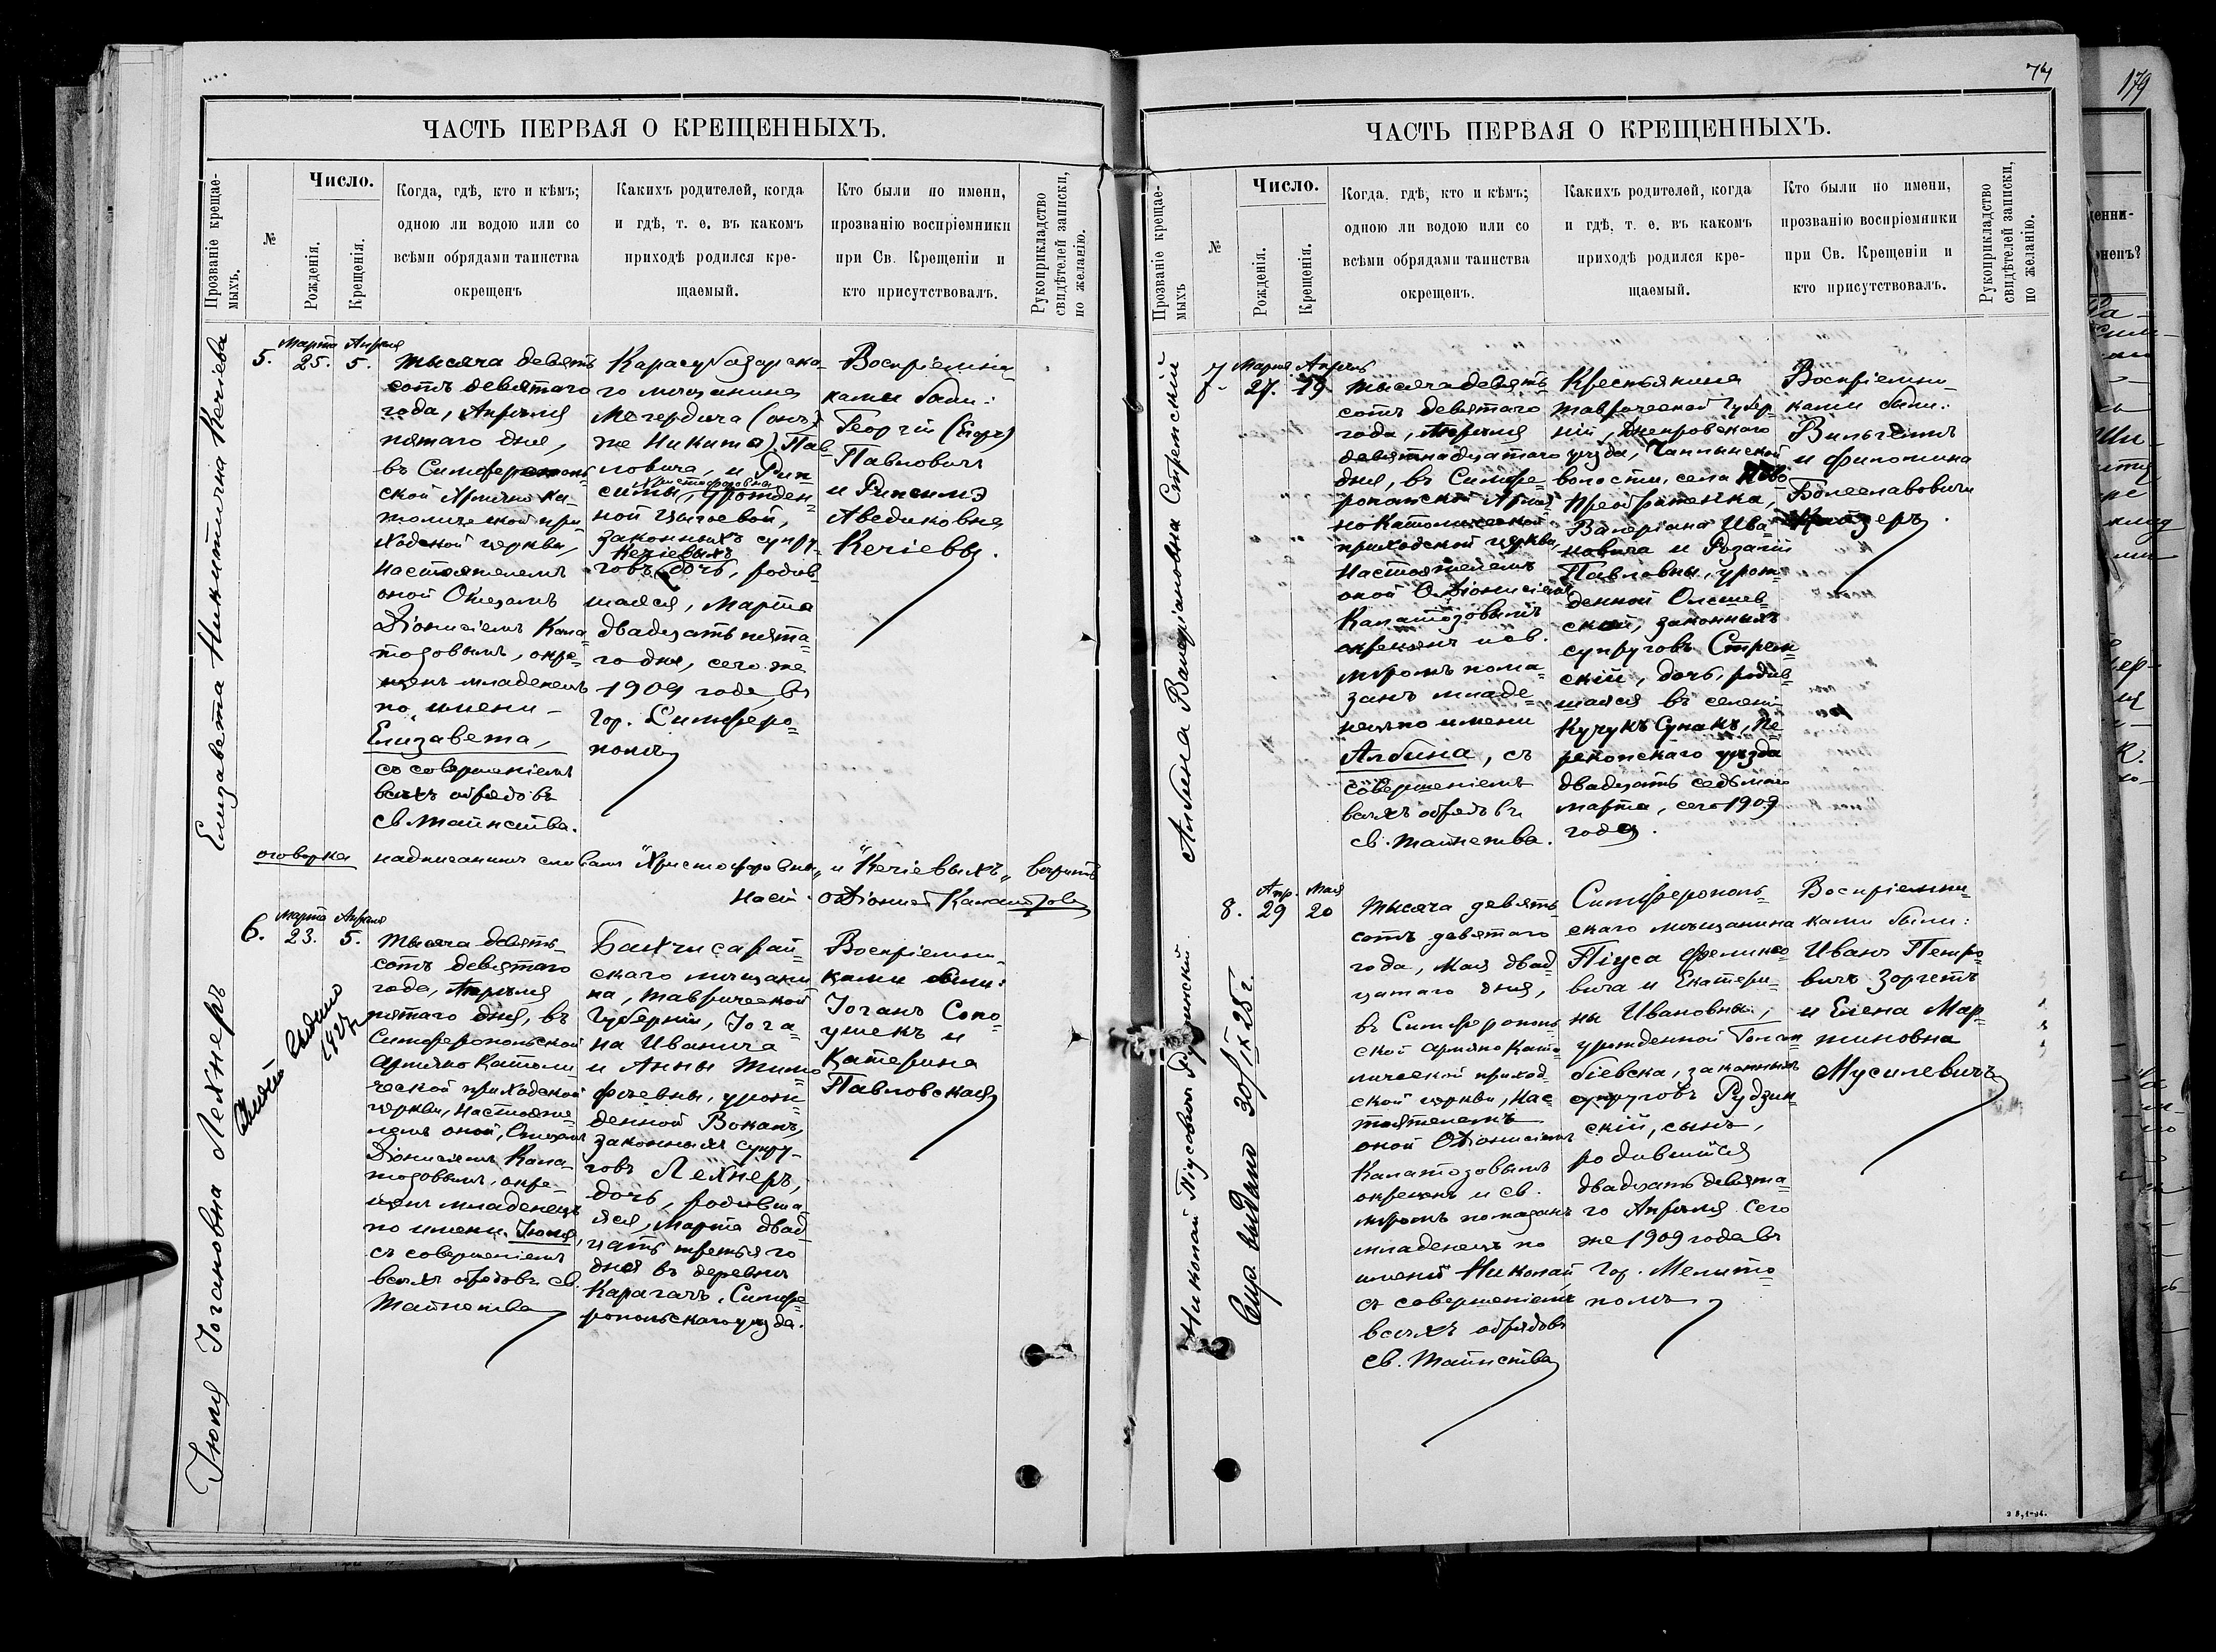 ЧАСТЬ ПЕРВАЯ О КРЕЩЕННЫХЪ.
Прозваніе крещае-
мыхъ.
№
Число.
Рожденія.
Крещенія.
Когда, гдѣ, кто и кѣмъ;
одною ли водою или со
всѣми обрядами таинства
окрещенъ
Какихъ родителей, когда
и гдѣ, т. е. въ какомъ
приходѣ родился кре-
щаемый.
Кто были по имени,
прозванію воспріемники
при Св. Крещеніи и
кто присутствовалъ.
Рукоприкладство
свидѣтелей записки,
по желанію.
Елизавета Никитична Кечіева
5.
Марта
25.
Апрѣля
5.
Тысяча девять
сотъ девятаго
года, Апрѣля
пятаго дня,
въ Симферополь
ской Армяно Ка-
толической при-
ходской церкви,
Настоятелемъ
оной Отцемъ
Діонисіемъ Кала-
тозовымъ, окре-
щенъ младенецъ
по имени
Елизавета,
съ совершеніемъ
всѣхъ обрядовъ
св. Таинства.
Карасубазарска-
го мѣщанина
Мегердича (онъ
же Никита) Пав-
ловича, и Рип-
симы, Христофоровны урожден-
ной
законныхъ супру-
говъ Кечіевыхъ дочь, родив-
шаяся, Марта
двадцать пята-
го дня, сего же
1909 года въ
гор. Симферо-
полѣ
Воспріемни-
ками были:
Георгій (Егоръ)
Павловичъ
и Рипсимэ
Аведиковна
Кечіевы.
оговорка надписаннымъ словамъ "Христофоровны" и "Кечіевыхъ" вѣрить
Наст. О. Діонисій Калатозовъ
Іюлія Іогановна Лехнеръ
6.
Марта
23.
Апрѣля
5.
Тысяча девять
сотъ девятаго
года, Апрѣля
пятаго дня, въ
Симферопольской
Армяно Католи
ческой приходской
церкви, Настояте-
лемъ оной, Отцемъ
Діонисіемъ Кала-
тозовымъ, окре-
щенъ младенецъ
по имени Іюлія,
съ совершеніемъ
всѣхъ обрядовъ св.
Таинства
Бахчисарай-
скаго мѣщани
на, Таврической
Губерніи, Іога-
на Иванича
и Анны Тимо
феевны, урож-
денной Воканъ,
законныхъ супру-
говъ Лехнеръ,
дочь, родивша-
яся, Марта двад
цать третьяго
дня въ деревнѣ
Карагачъ, Симфе-
ропольскаго уѣзда.
Воспріемни-
ками были:
Іоганъ Соло-
ушекъ и
Катерина
Павловская
74
179
ЧАСТЬ ПЕРВАЯ О КРЕЩЕННЫХЪ.
Прозваніе крещае-
мыхъ
№
Число.
Рожденія.
Крещенія.
Когда, гдѣ, кто и кѣмъ;
одною ли водою или со
всѣми обрядами таинства
окрещенъ.
Какихъ родителей, когда
и гдѣ, т. е. въ какомъ
приходѣ родился кре-
щаемый.
Кто были по имени,
прозванію воспріемники
при Св. Крещеніи и
кто присутствовалъ.
Рукоприкладство
свидѣтелей записки,
по желанію.
Албина Валеріановна Стрѣмскій
7
Марта
27.
Апрѣль
19
Тысяча девять-
сотъ девятаго
года, Апрѣля
девятнадцатаго
дня, въ Симфе-
ропольской Армя-
но Католической
приходской церкви,
Настоятелемъ
оной О. Діонисіемъ
Калатозовымъ
окрещенъ и св.
муромъ пома-
занъ младе-
нецъ по имени
Албина, съ
совершеніемъ
всѣхъ обрядовъ
св. Таинства.
Крестьянина
Таврической Губер-
ніи, Днепровскаго
уѣзда, Чаплинской
волости, села Ново
Преображенка,
Валеріана Ива-
новича и Розаліи
Павловны, урож-
денной Олешев-
ской, законныхъ
супруговъ Стрем-
скій, дочь, родив-
шаяся въ селени
Кучукъ Сунакъ, Пе-
рекопскаго уѣзда
двадцать седьмаго
марта, сего 1909
года.
Воспріемни-
ками были:
Вильгелмъ
и Филомина
Болеславовичи
8.
Апр.
29
Мая
20
Николай Піусовичъ Рудзинскій.
Спр. выдано 30/IX 25 г.
Тысяча девять-
сотъ девятаго
года, Мая двад-
цатаго дня,
въ Симферополь
ской Армяно Като-
лической приход-
ской церкви, Нас-
тоятелемъ
оной О. Діонисіемъ
Калатозовымъ
окрещенъ и св.
муромъ помазанъ
младенецъ по
имени Николай
съ совершеніемъ
всѣхъ обрядовъ
св. Таинства
Симферополь-
скаго мѣщанина
Піуса Феликсо-
вича и Екатери-
ны Ивановны,
урожденной
законныхъ
супруговъ Рудзин-
скій, сынъ,
родившійся
двадцать девята-
го Апрѣля сего
же 1909 года въ
гор. Мелито-
полѣ
Воспріемни-
ками были:
Иванъ Петро-
вичъ Зоргетъ
и Елена Мар-
тиновна
Мусилевичъ